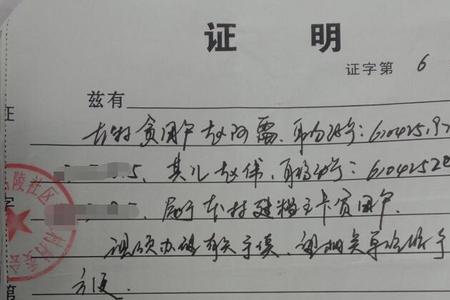 证 明
证字第 6
兹有
本村贫困户赵阿需,身份证号:610425197
5,其儿赵伟,身份证号:61042520
5,属于本村建档立卡贫困户.
现须办理有关手续,望相关单位给予
方便.
陵社区
证
第